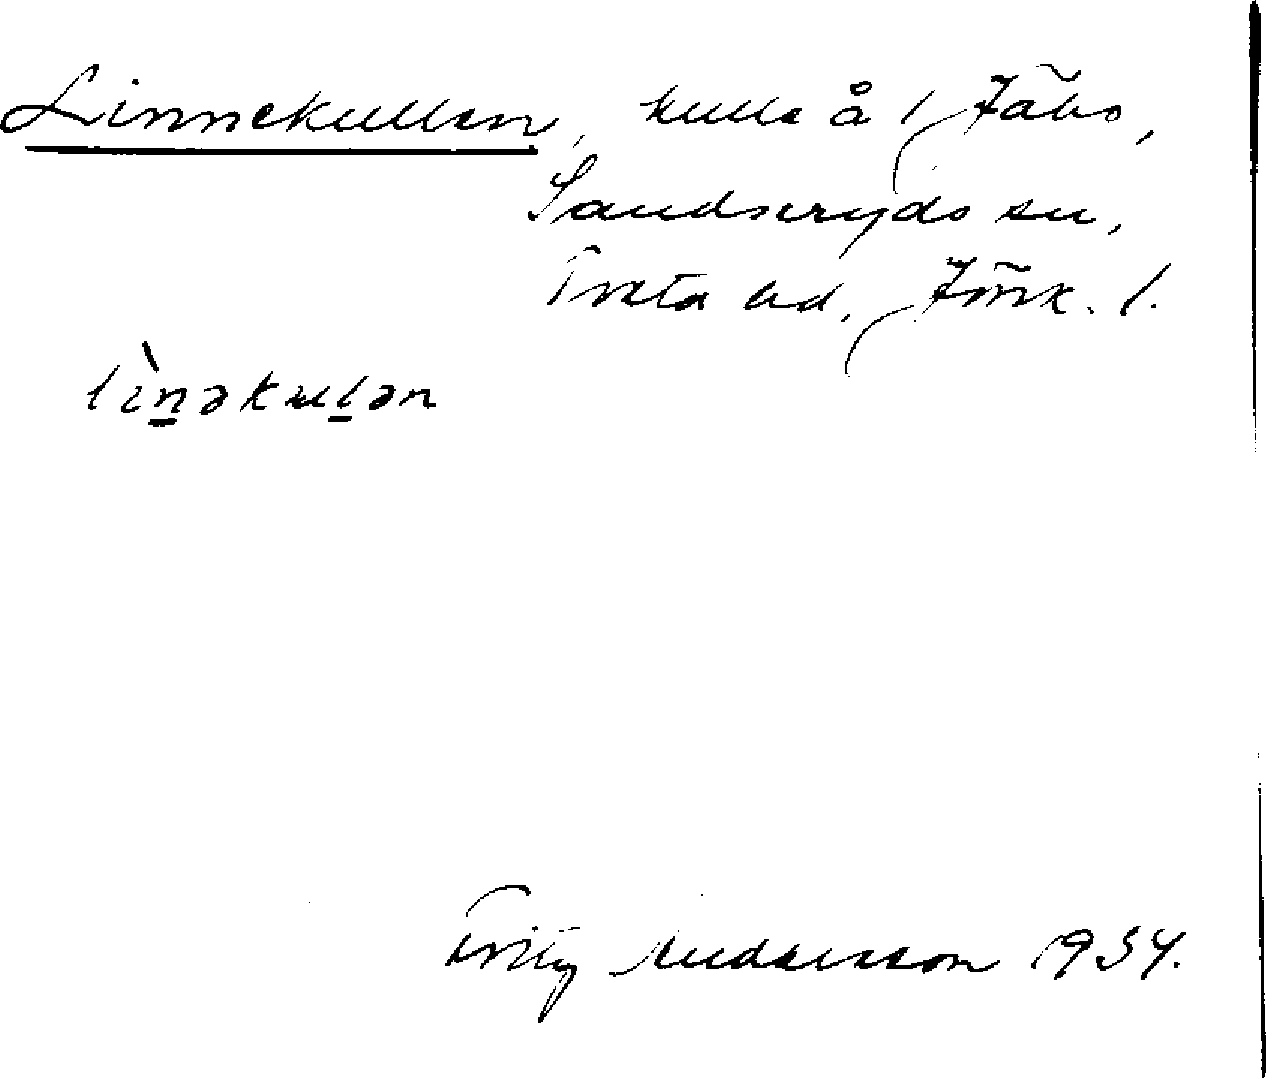 Linnekullen, kulle å 1 Jära,
Sandseryds sn,
Tveta hd, Jönk. l.
lìn̲əkul̲ən
Fritz Andersson 1934.